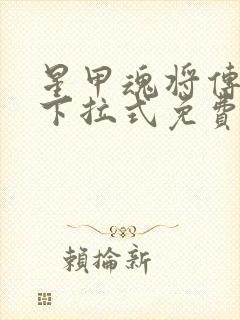 星甲魂将傳
下拉式免費
賴掄新